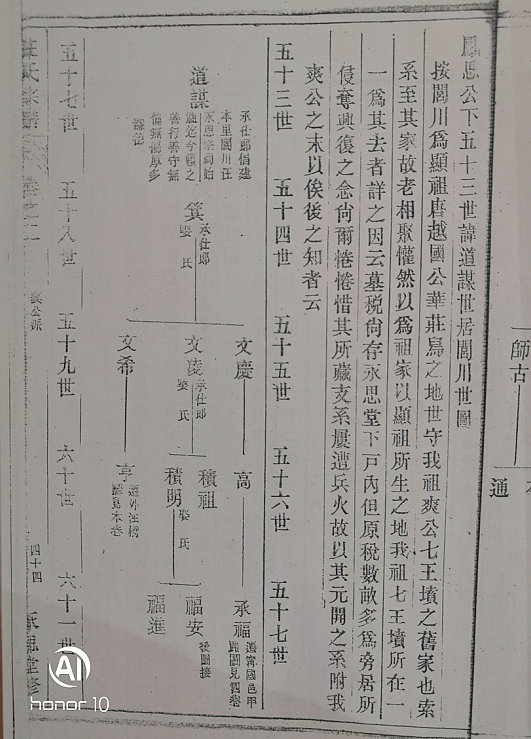 師古
通
鳳思公下五十三世諱道謀世居閶川世圖
按閶川爲顯祖唐越國公華莊烏之地世守我祖爽公七王墳之舊家也索
系至其家故老相聚懽然以爲祖家以顯祖所生之地我祖七王墳所在一
一爲其去者詳之因云墓税尙存永思堂下戸內但原税數畝多爲旁居所
侵奪興復之念尙爾惓惓惜其所藏支系屢遭兵火故以其元開之系附我
爽公之末以俟後之知者云
五十三世 五十四世 五十五世 五十六世 五十七世
道謀
承仕郎倡建
本里閶川汪
永思宗祠始
箕
承仕郎
娶 氏
文慶
高
承福
遷寧國邑甲
文凌
承仕郎
娶 氏
積祖
積明
娶 氏
福安
後圖接
福進
文希
亨
五十七世 五十八世 五十九世 六十世 六十一世
爽公派
四十四
承恩堂修
AI
honor 10